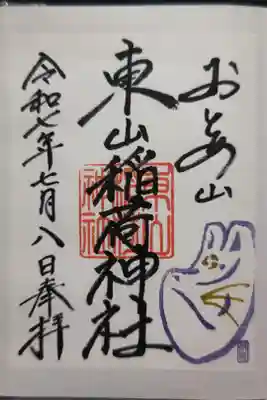 おとめ山
東山稲荷神社
令和七年七月八日奉拝